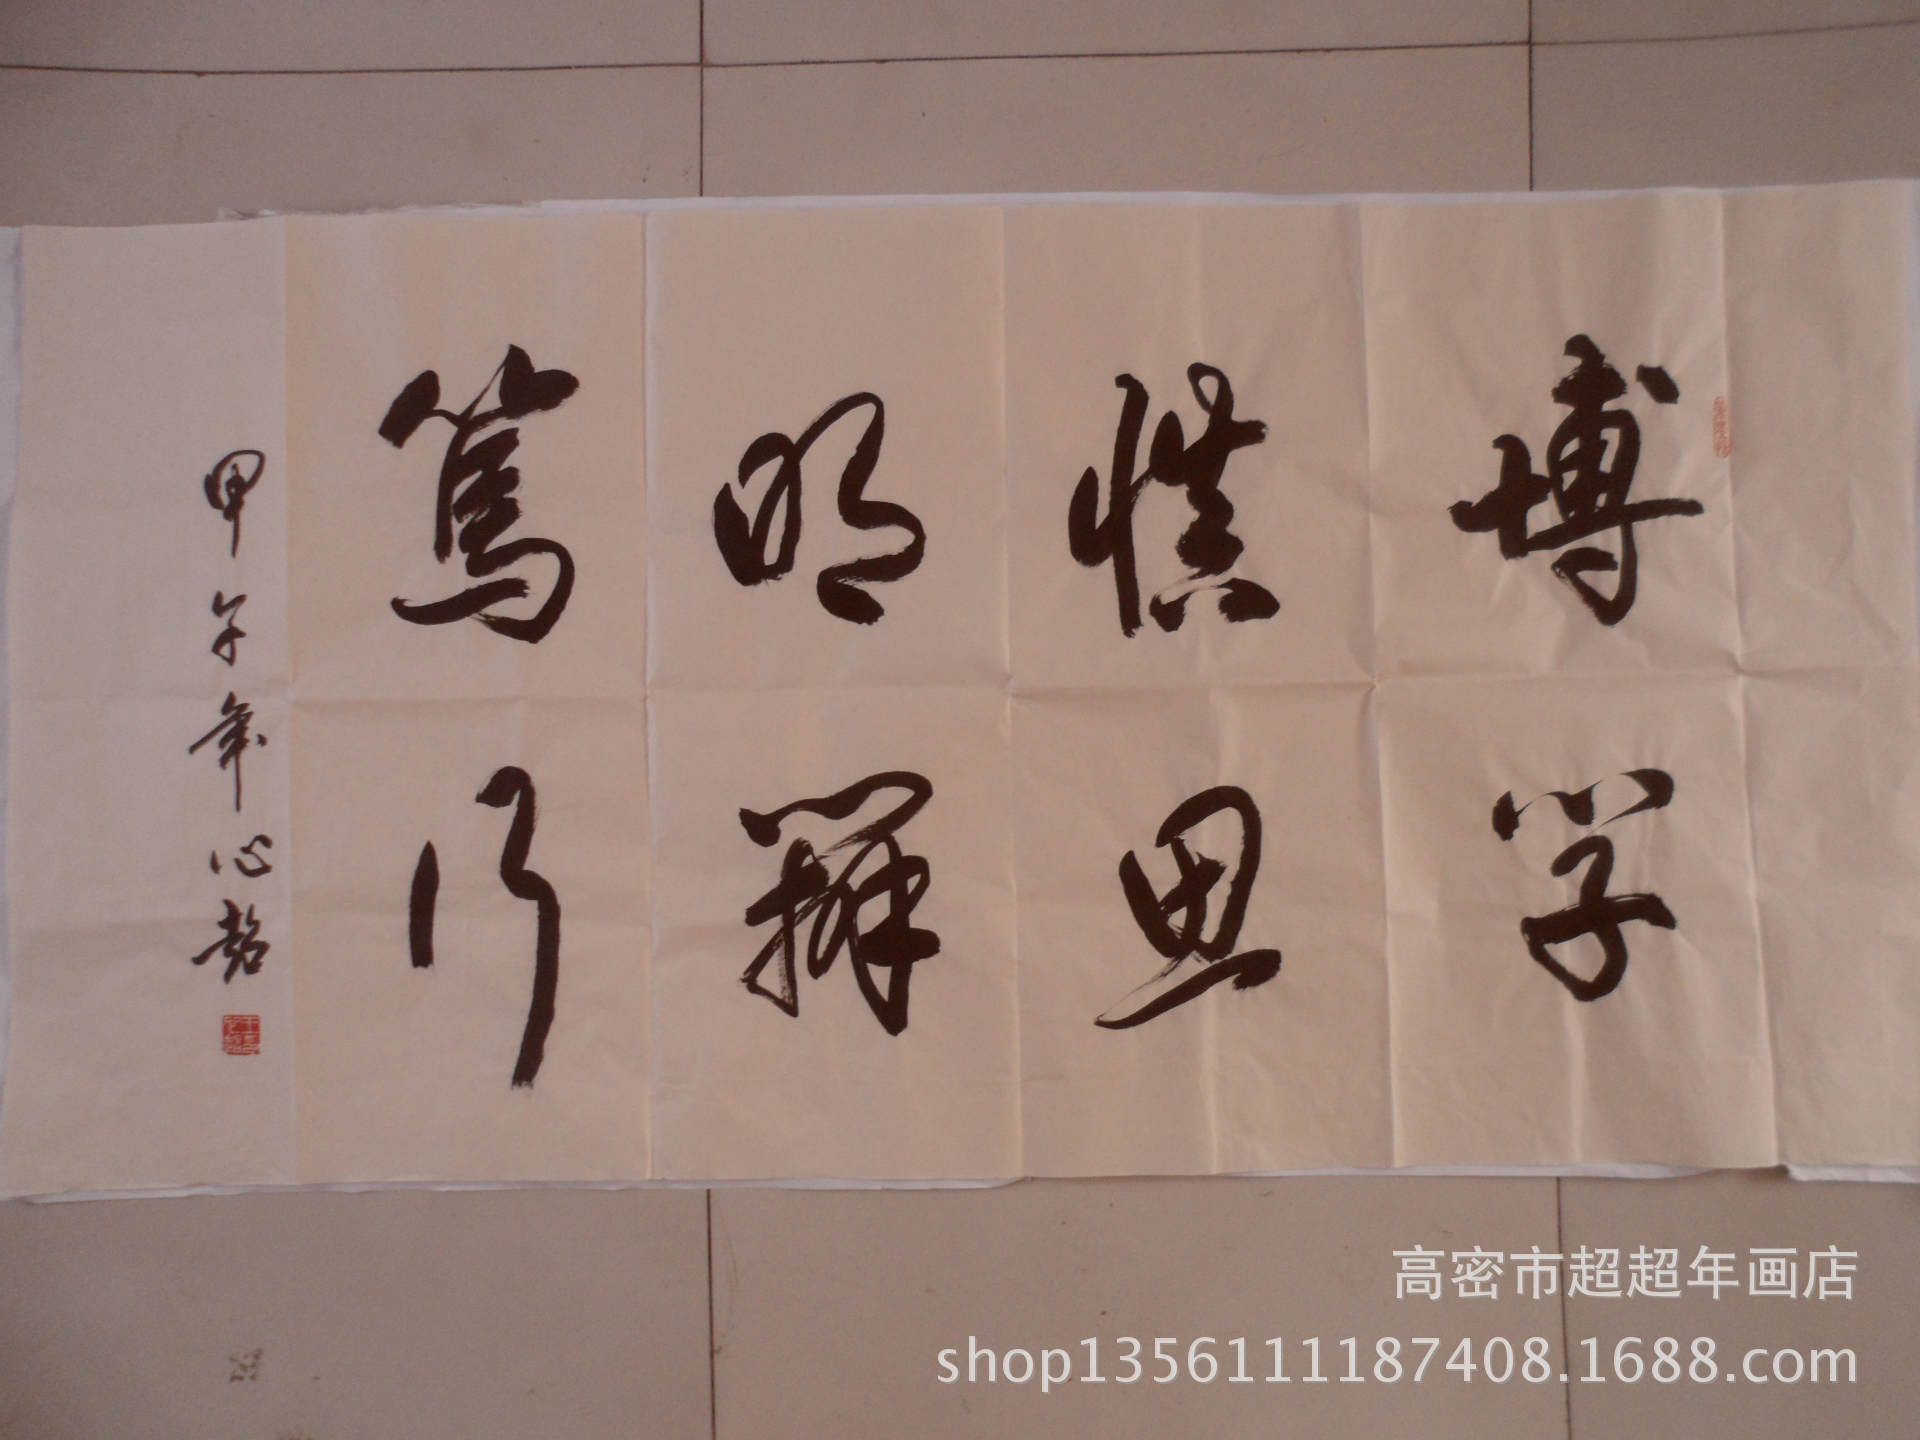 博学
慎思
明辨
篤行
甲午年心超
高密市超超年画店
shop1356111187408.1688.com